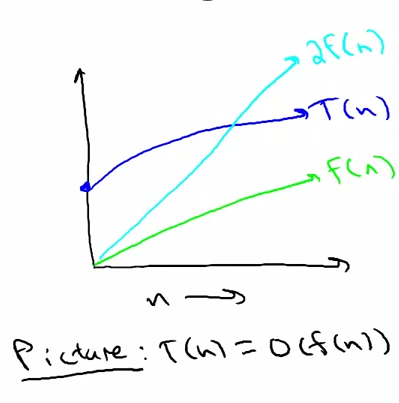 2f(n)
T(n)
f(n)
n
Picture: T(n) = O(f(n))